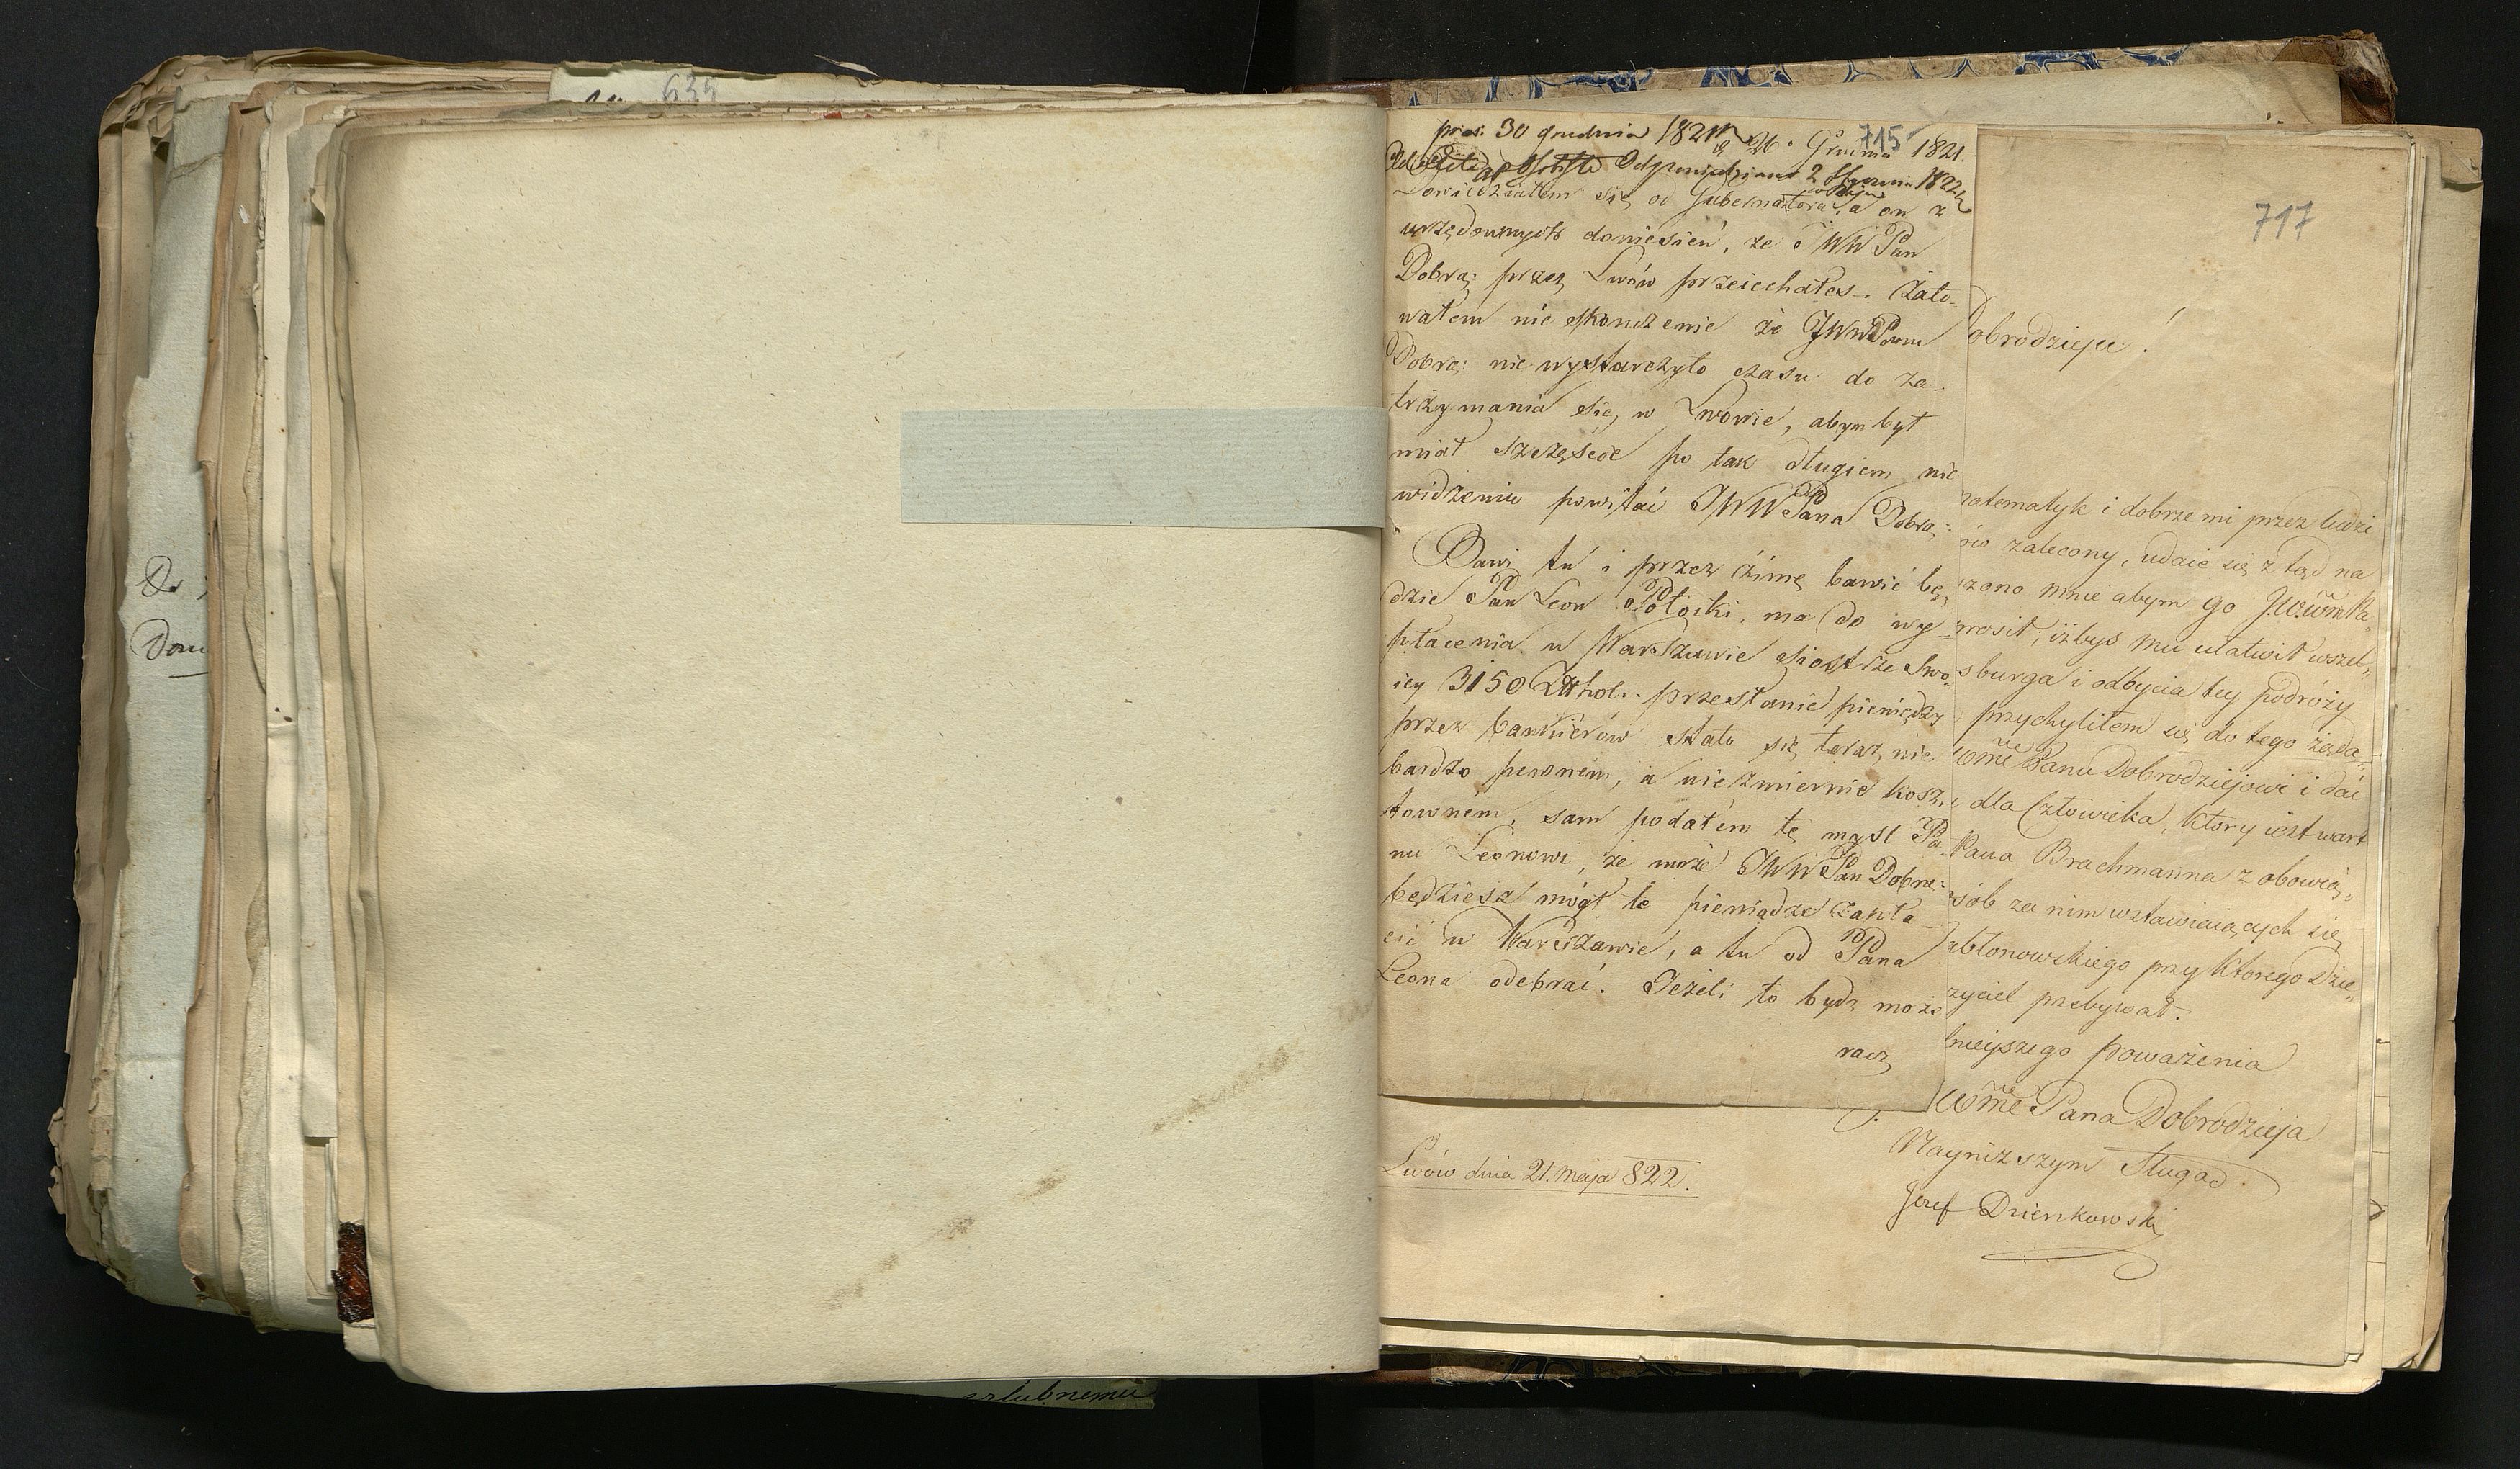 635
Do
Dou
szlubnemu
pres. 30 grudnia 1821
26. Grudnia 1821.
715
Odpowiedziano 2 Stycznia 1822
Dowiedziałem się od Gubernatora, a on z
urzędownych doniesień, że JWW Pan
Dobrą: przez Lwów przeiechałeś. Żało-
wałem nieskończenie że JWWPanu
Dobrą: nie wystarczyło czasu do za-
trzymania się w Lwowie, abym był
miał szczęście po tak długiem nie
widzeniu powitać JWW Pana Dobrą:
Bawi tu i przez zimę bawić bę-
dzie Pan Leon Potocki, ma do wy-
płacenia w Warszawie siostrze swo-
iey 3150 hol. przesłanie pieniędzy
przez bankierów stało się teraz nie
bardzo pewnem, a niezmiernie kosz-
towném, sam podałem tę myśl Pa-
nu Leonowi, że może JWW Pan Dobrą:
będziesz mógł te pieniądze zapła-
cić w Warszawie, a tu od Pana
Leona odebrać. Jeżeli to bydź może
racz
717
Dobrodzieju!
matematyk i dobrze mi przez ludzi
zalecony, udaie się z tąd na
zono mnie abym go
prosił, iżbyś mu ułatwił wszel„
sburga i odbycia tey podróży
przychyliłem się do tego żąda„
Panu Dobrodziejowi i dać
dla Człowieka, który iest wart
Pana Brachmanna z obowią„
sób za nim wstawiaiących się
abłonowskiego przy którego Dzie„
zyciel przebywał.
niejszego poważenia
Pana Dobrodzieja
Nayniższym Sługą
Lwów dnia 21. maja 822.
Jozef Dzienkowski